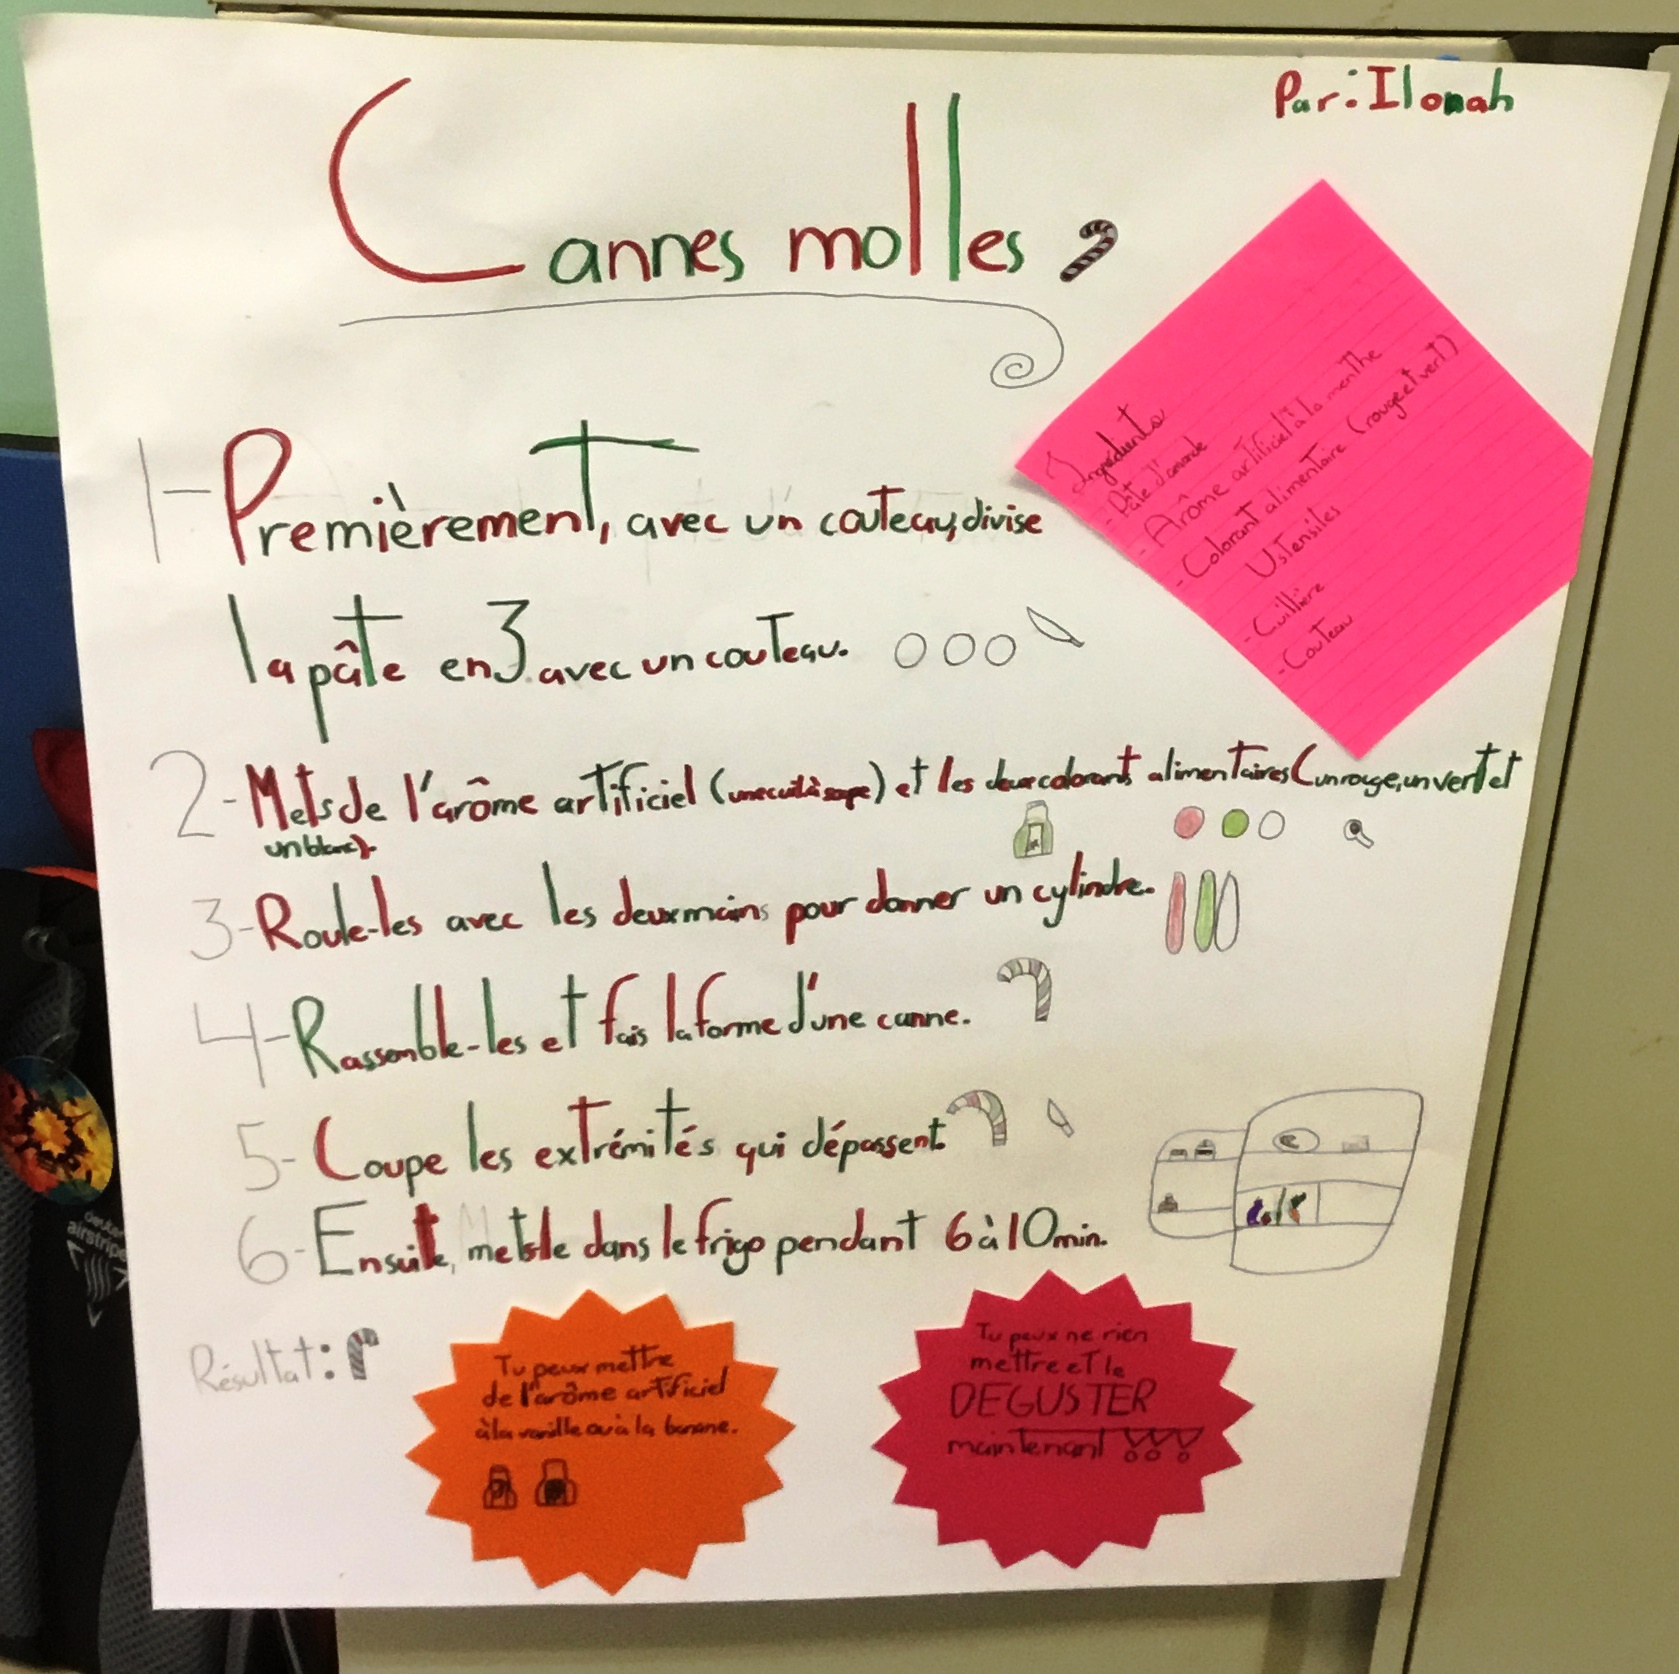 Par: Ilonah
Cannes molles
Ingrédients
- Pâte d'amande
- Arôme artificiel à la menthe
- Colorant alimentaire (rouge et vert)
Ustensiles
- Cuillière
- Couteau
1- Premièrement, avec un couteau, divise
la pâte en 3 avec un couteau.
2- Mets de l'arôme artificiel (une cuil à soupe) et les deux colorants alimentaires (un rouge, un vert et
un blanc).
3- Roule-les avec les deux mains pour donner un cylindre.
4- Rassemble-les et fais la forme d'une canne.
5- Coupe les extrémités qui dépassent.
6- Ensuite, mets-le dans le frigo pendant 6 à 10 min.
Résultat:
Tu peux mettre
de l'arôme artificiel
à la vanille ou à la banane.
Tu peux ne rien
mettre et le
DEGUSTER
maintenant
airstripes